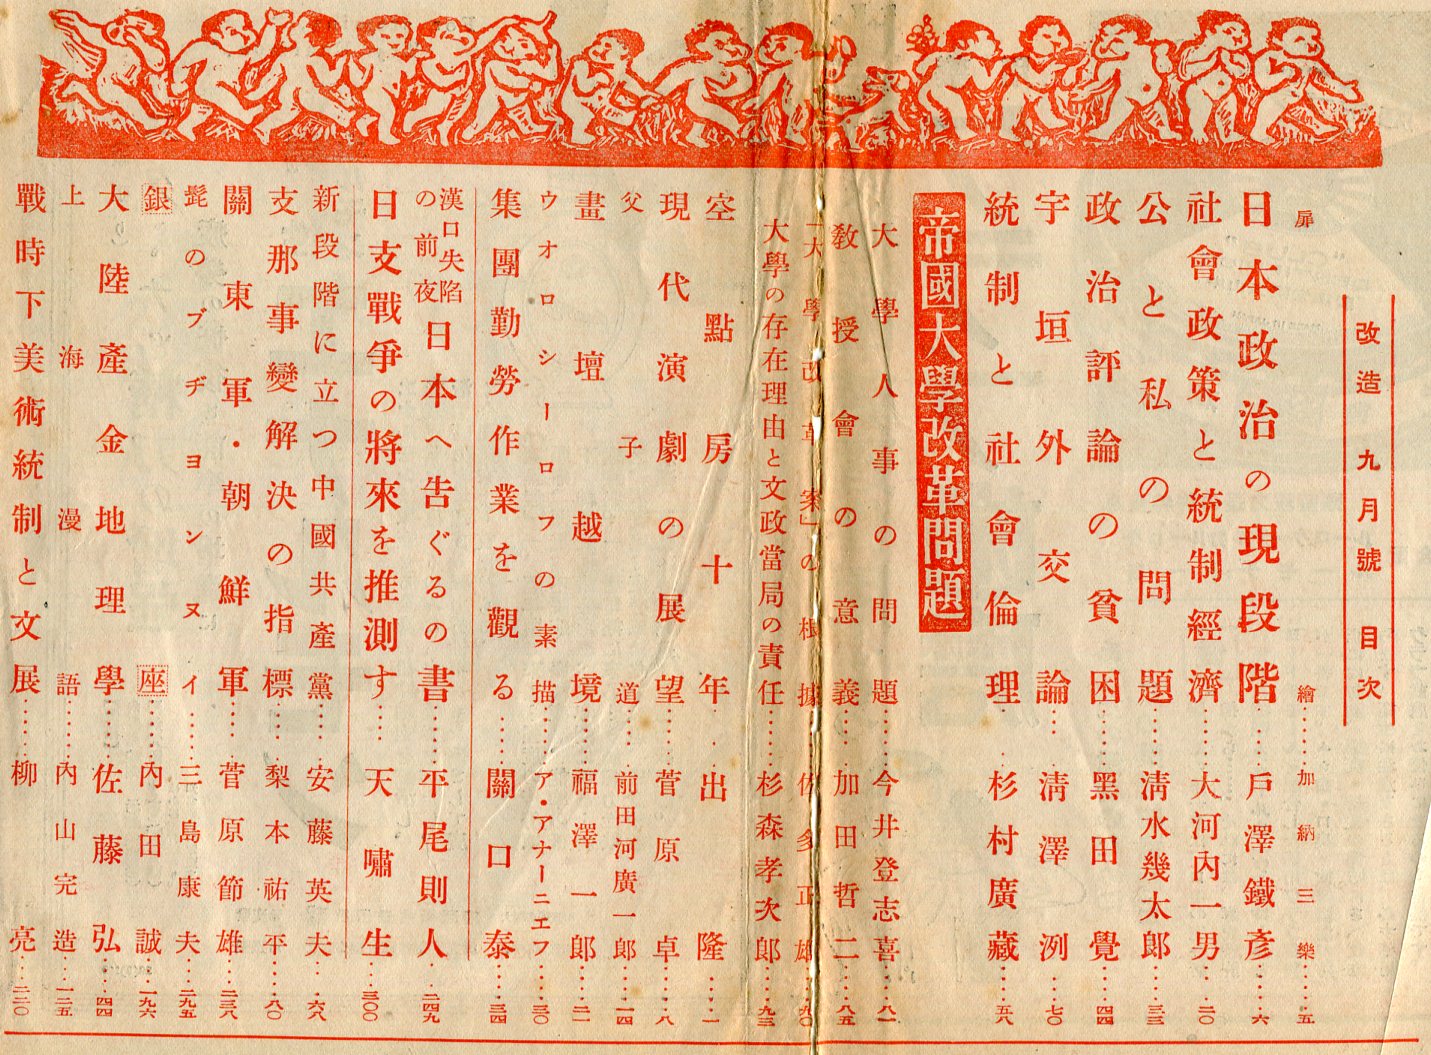 改造 九月號 目次
扉 繪……加納三樂……五
日本政治の現段階……戸澤鐵彥……六
社會政策と統制經濟……大河內一男……二〇
公と私の問題……淸水幾太郎……三三
政治評論の貧困……黑田覺……四四
宇垣外交論……淸澤洌……七〇
統制と社會倫理……杉村廣藏……五八
帝國大學改革問題
大學人事の問題……今井登志喜……八一
敎授會の意義……加田哲二……八五
「大學改革案」の根據……佐多正雄……九〇
大學の存在理由と文政當局の責任……杉森孝次郎……九三
空點房十年……出隆……一
現代演劇の展望……菅原卓……八
父子道……前田河廣一郎……一四
畫壇越境……福澤一郎……二一
ウオロシーロフの素描……ア・アナーニエフ……三〇
集團勤勞作業を觀る……關口泰……三四
漢口失陷の前夜 日本へ吿ぐるの書……平尾則人……二四九
日支戰爭の將來を推測す……天嘯生……三〇〇
新段階に立つ中國共產黨……安藤英夫……六八
支那事變解決の指標……梨本祐平……八〇
關東軍・朝鮮軍……菅原節雄……二三八
髭のブヂヨンヌイ……三島康夫……二九五
銀座……內田誠……一九六
大陸產金地理學……佐藤弘……四四
上海漫語……內山完造……一二五
戰時下美術統制と文展……柳亮……二二〇